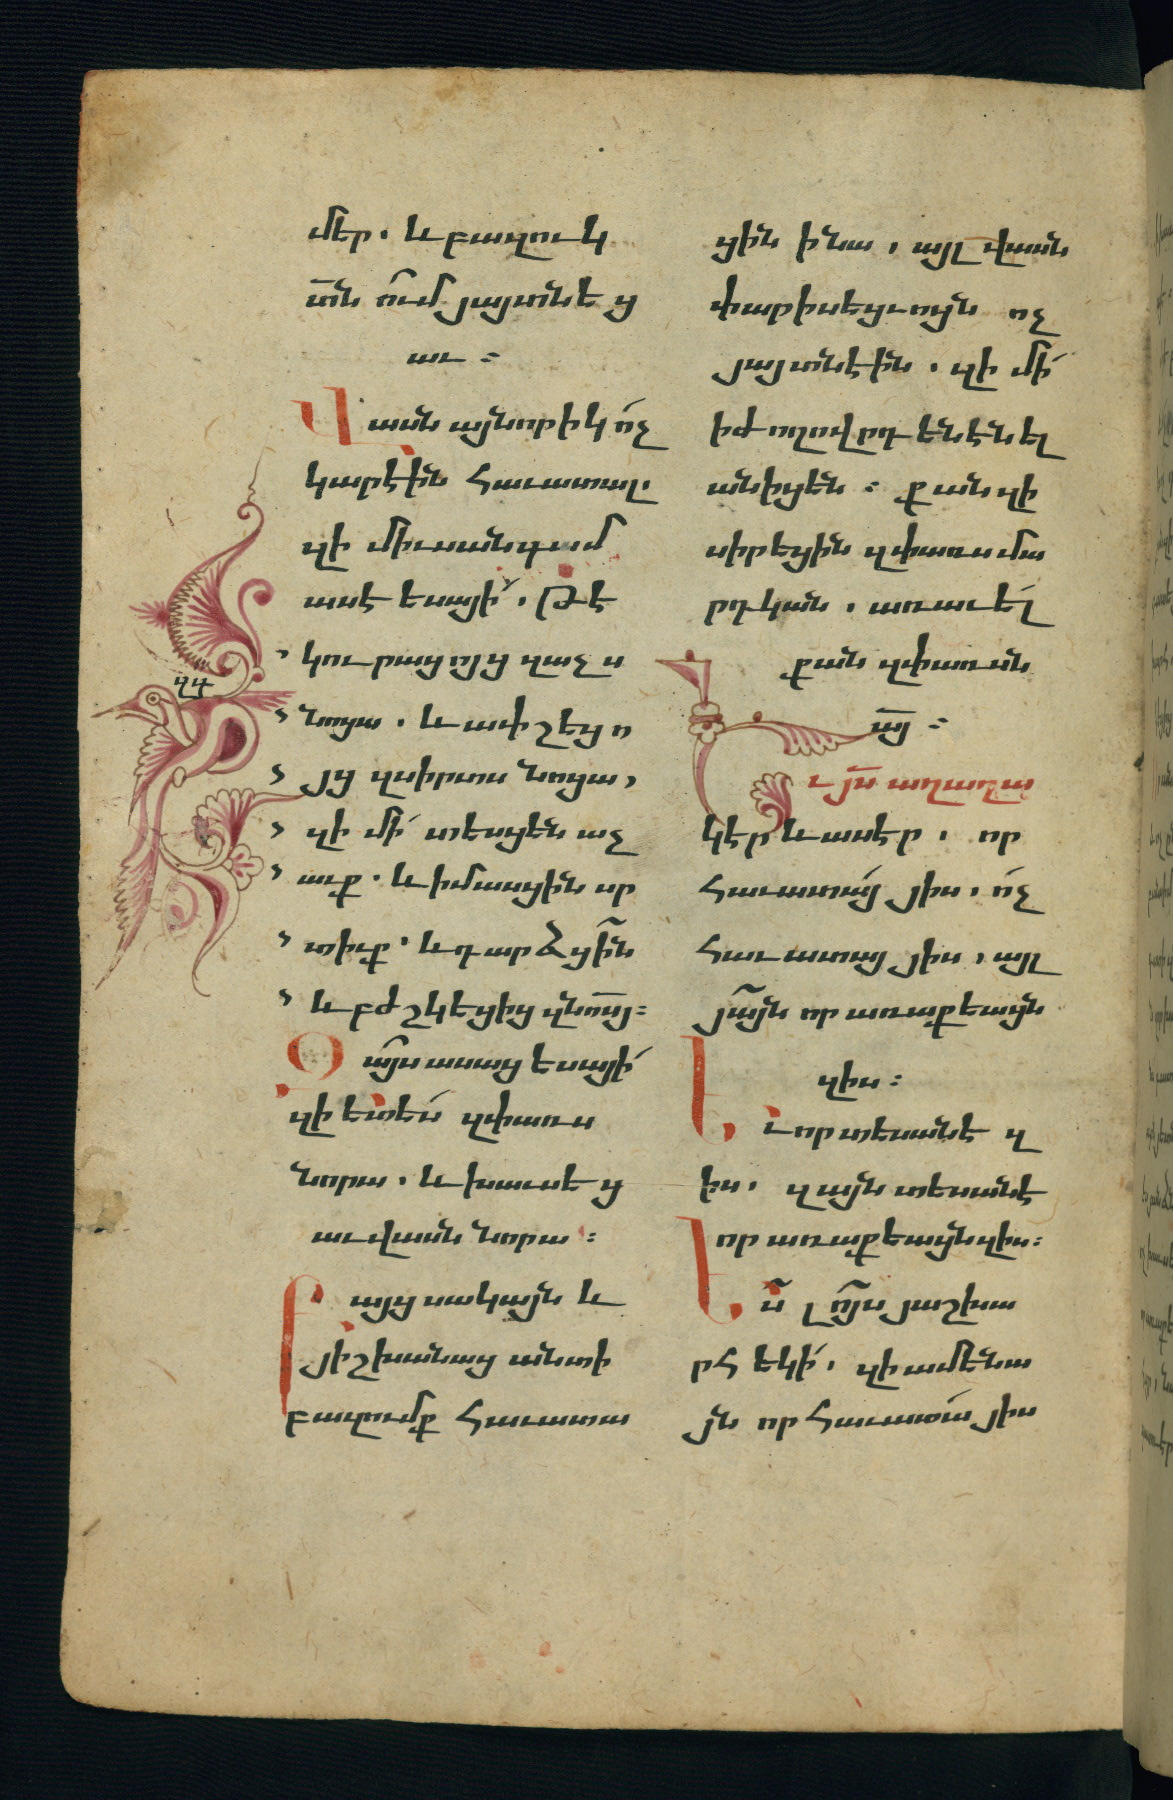 մեր. և բազուկ
տն ում յայտնեց
աւ :
Վասն այնորիկ ոչ
կարէին հաւատալ.
զի միւսանգամ
ասէ եսայի. թէ
կուրացոյց զաչս
նոցա. և ափշեցո
յց զսիրտս նոցա,
զի մի տեսցեն աչ
աւք. և իմասցին սր
տիւք. և դարձցին
և բժշկեցից զնոսյ :
Զայս ասաց եսայի
զի ետես զփառս
նորա. և խաւսեց
աւ վասն նորա :
Բայց սակայն և
յիշխանաց անտի
բազումք հաւատա
ղդ
ցին ինա, այլ վասն
փարիսեցւոցն ոչ
յայտնէին. զի մի
ի ժողովրդենէն ել
անիցեն : քանզի
սիրեցին զփառս մա
րդկան. առաւել
քան զփառսն
այ :
Եւ յս աղաղա
կեր և ասեր. որ
հաւատայ յիս. ոչ
հաւատայ յիս, այլ
յայն որ առաքեացն
զիս :
Եւ որ տեսանէ զ
իս. զայն տեսանէ
որ առաքեացն զիս :
Ես լոյս յաշխա
րհ եկի. զի ամենա
յն որ հաւատա յիս